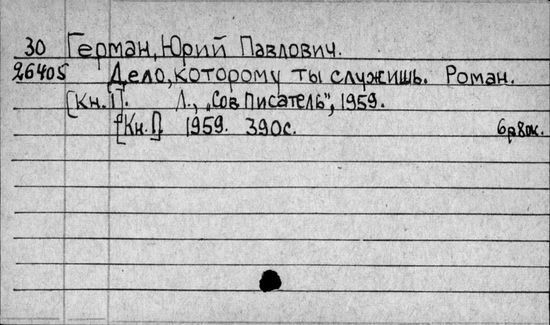 30 Герман, Юрий Павлович.
26405 Дело, которому ты служишь. Роман.
[Кн. I]. Л., „Сов. Писатель", 1959.
[Кн. I]. 1959. 390 с. 6р80к.